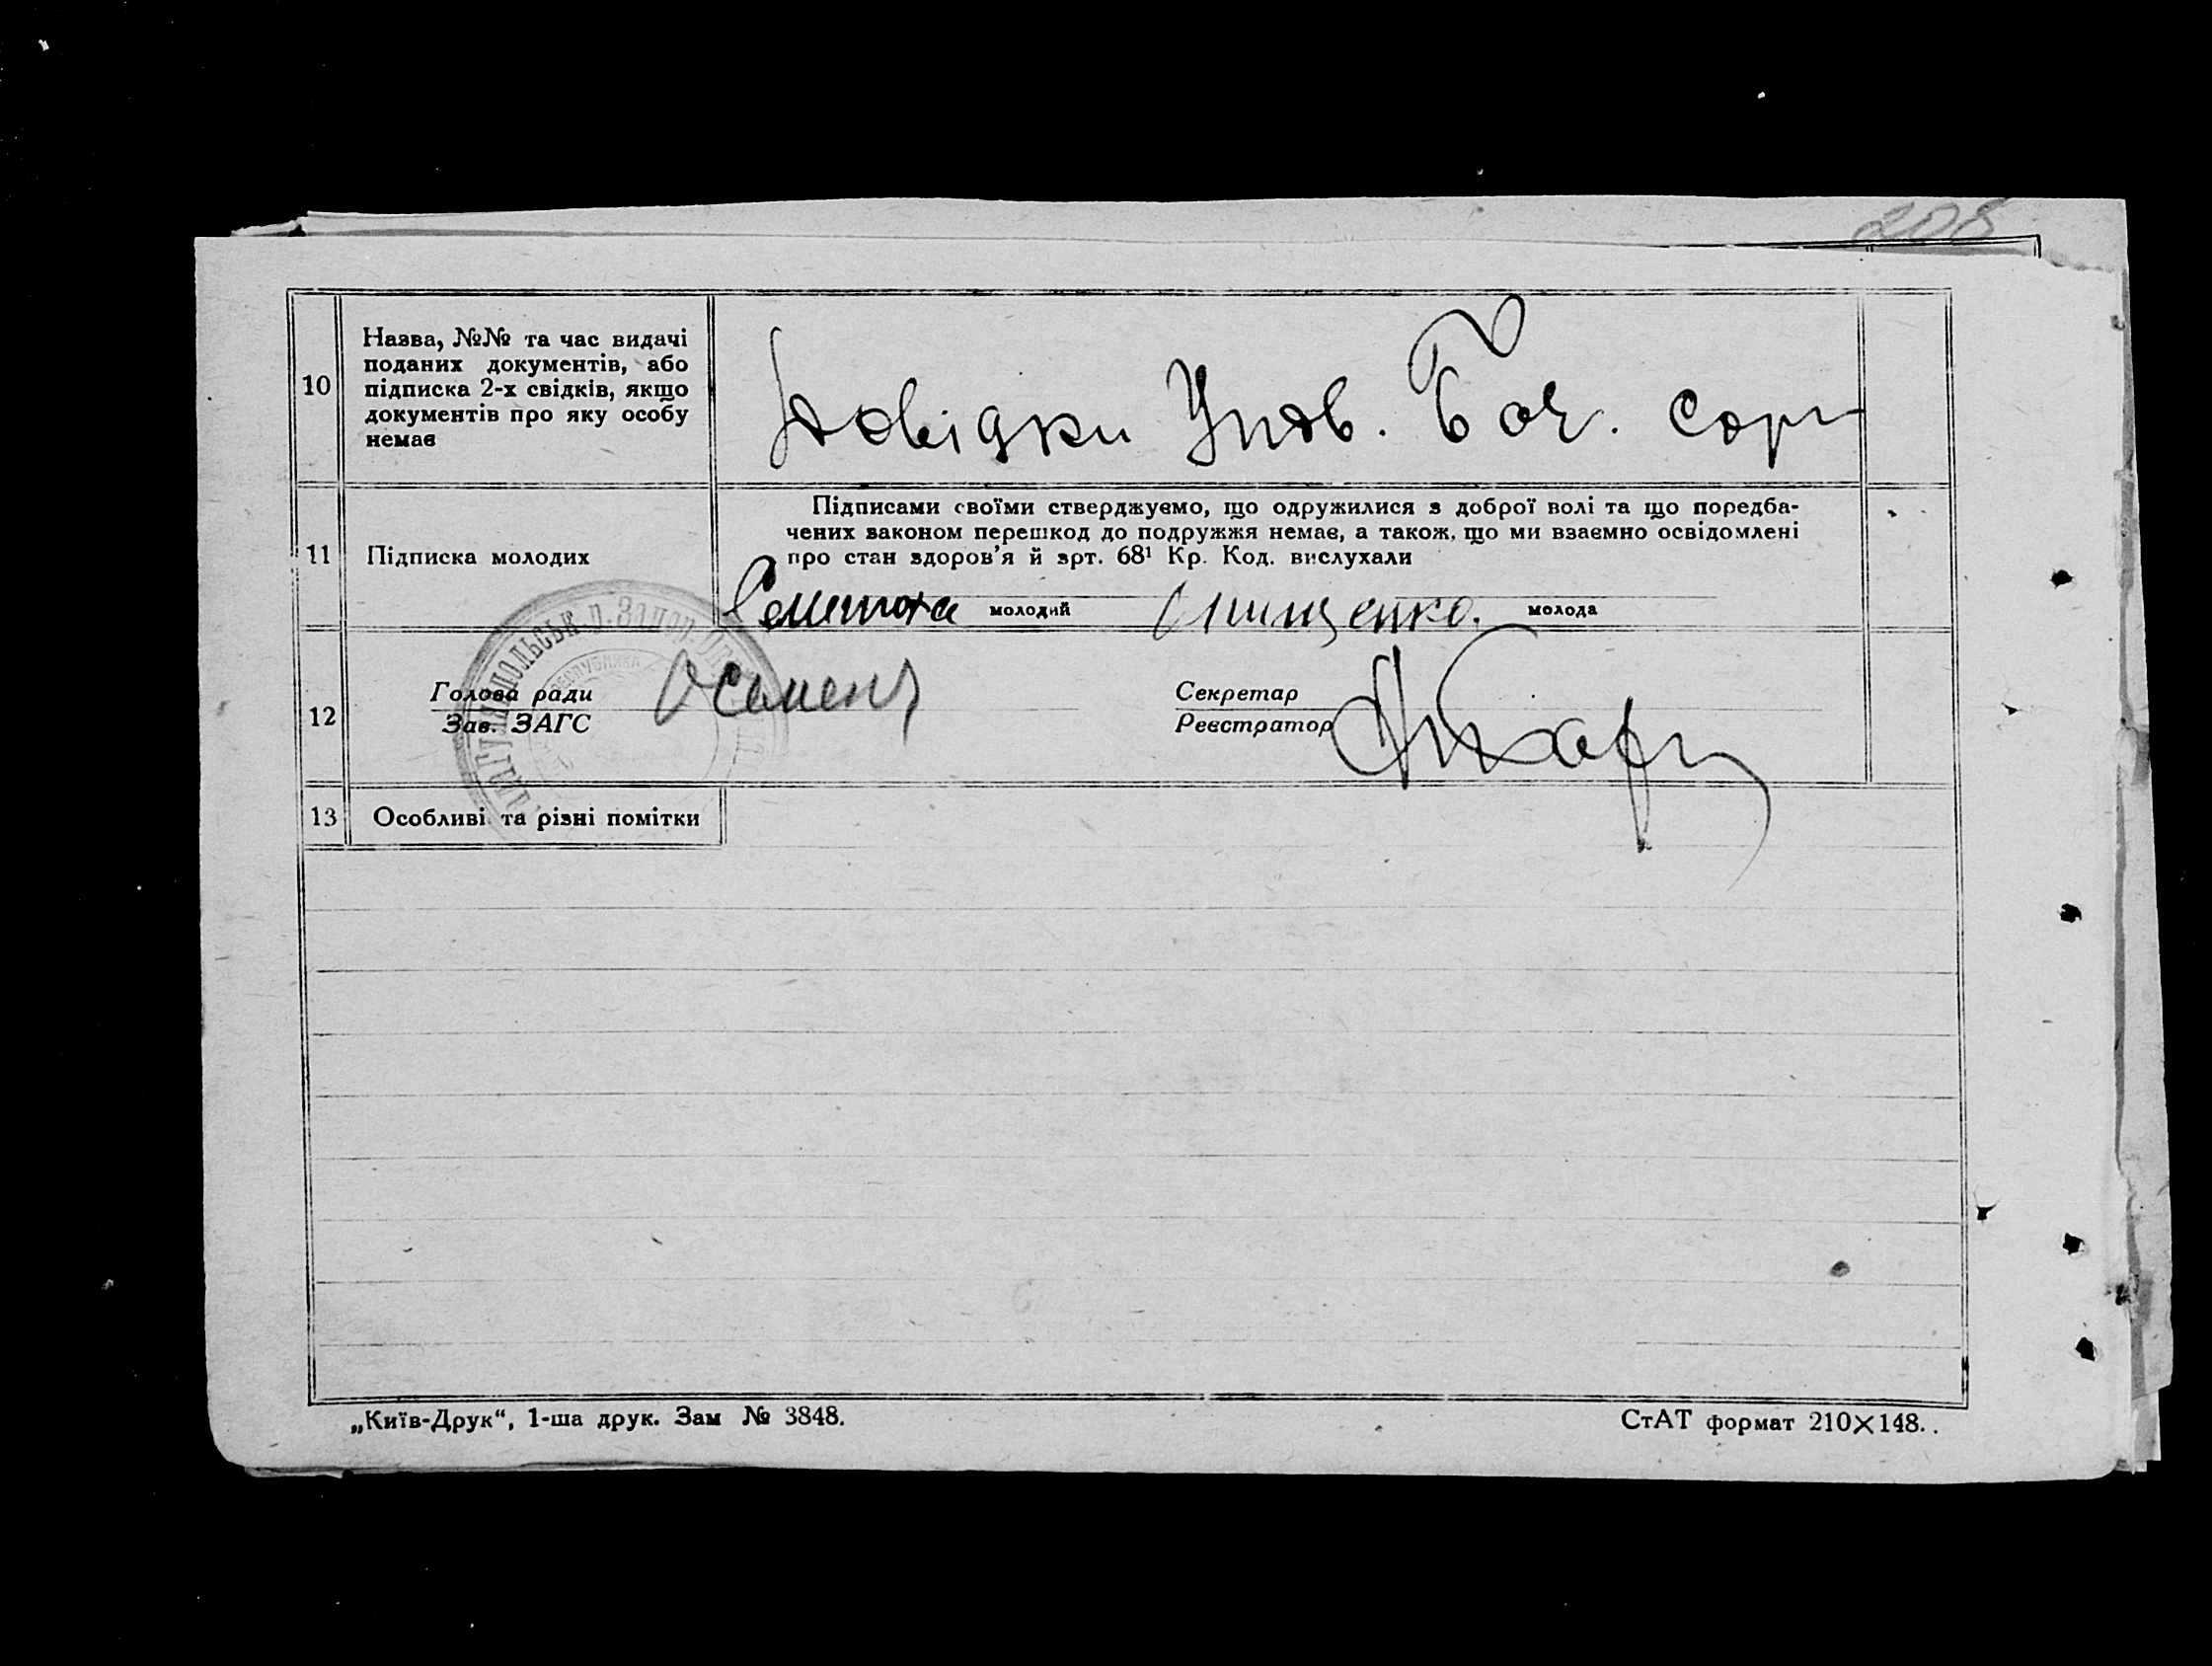 208
10
Назва, №№ та час видачі
поданих документів, або
підписка 2-х свідків, якщо
документів про яку особу
немає
Довідки Упов. Боч. сорт
11
Підписка молодих
Підписами своїми стверджуємо, що одружилися з доброї волі та що поредба-
чених законом перешкод до подружжя немає, а також, що ми взаємно освідомлені
про стан здоров'я й арт. 68¹ Кр. Код. вислухали
молодий Онищенко. молода
12
Голова ради
Зав. ЗАГС
Секретар
Реєстратор
13
Особливі та різні помітки
„Київ-Друк“, 1-ша друк. Зам № 3848.
СтАТ формат 210×148.